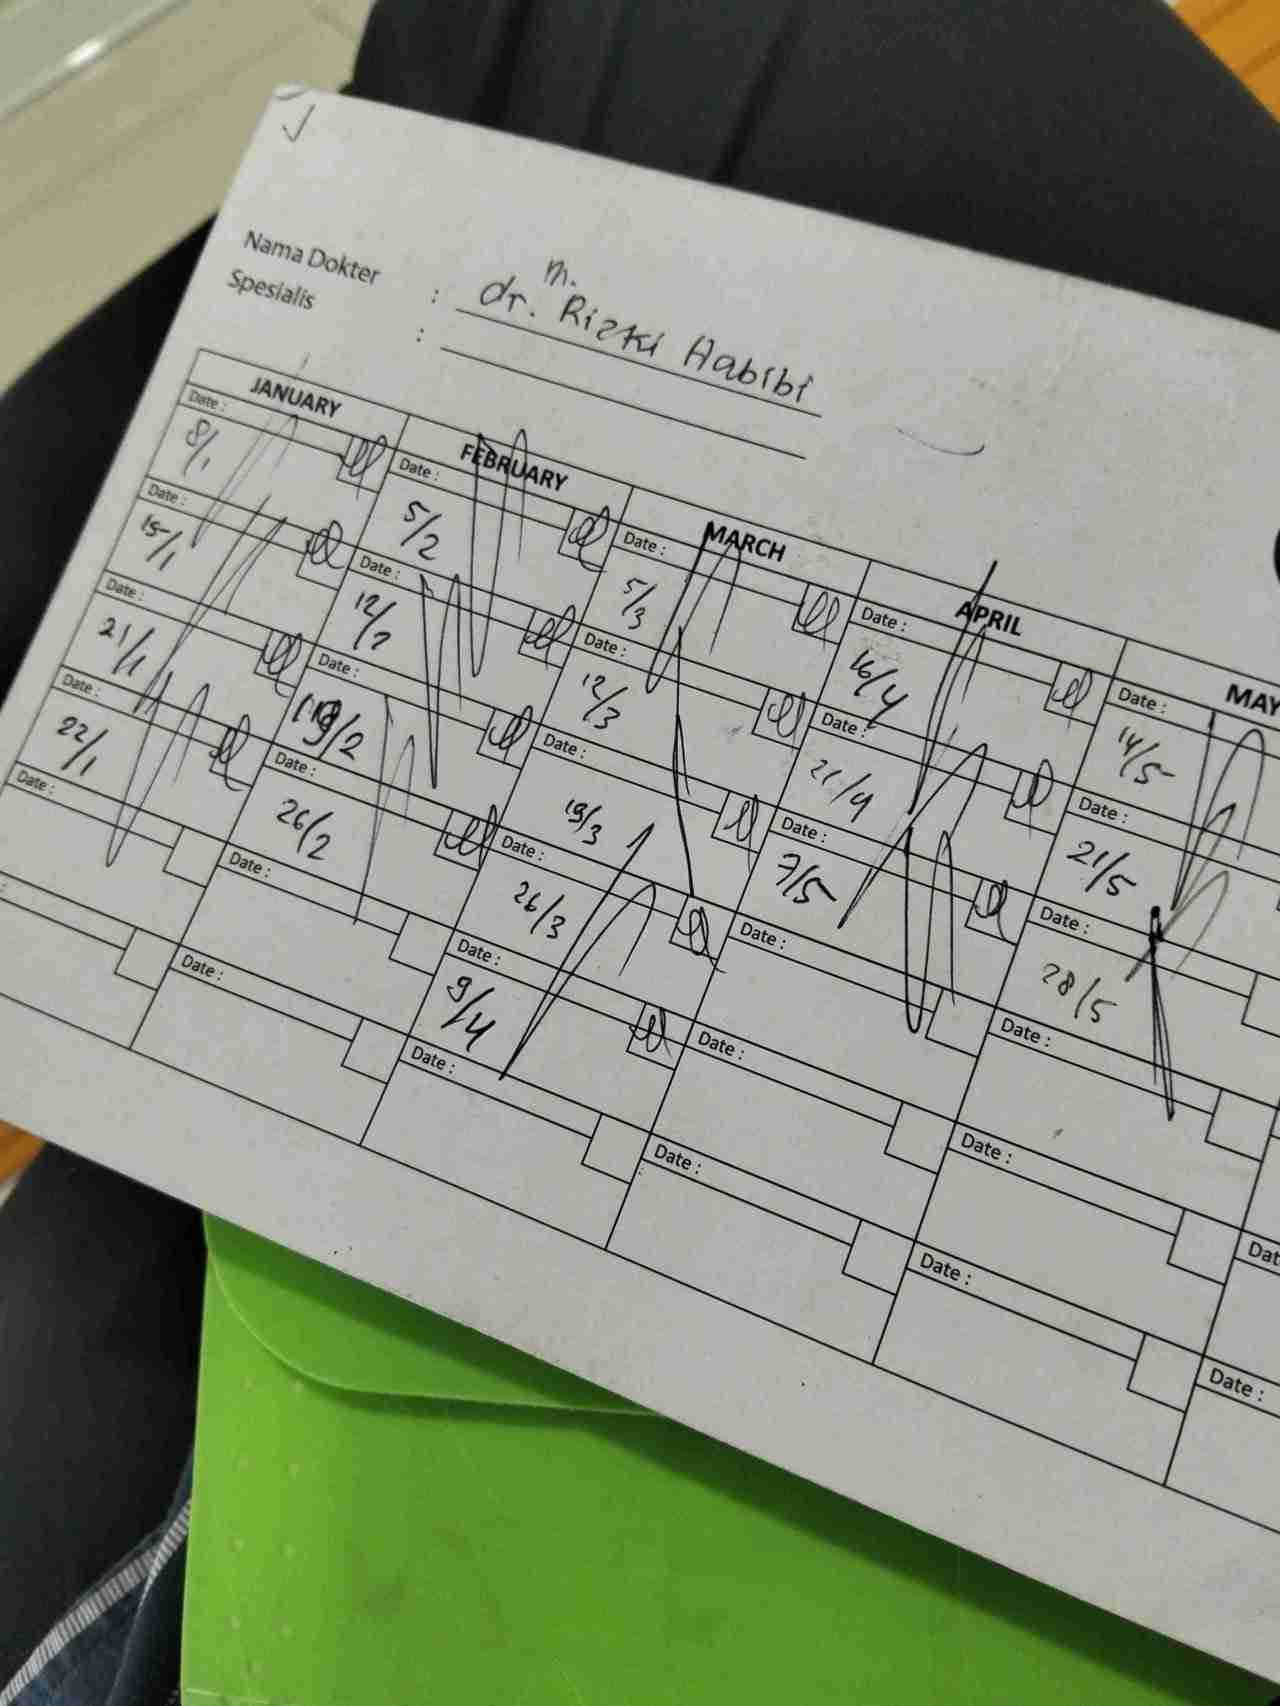 Nama Dokter : dr. M. Rizki Habibi
Spesialis :
JANUARY FEBRUARY MARCH APRIL MAY
Date : Date : Date : Date : Date :
8/1 5/2 5/3 16/4 14/5
Date : Date : Date : Date : Date :
15/1 12/2 12/3 21/4 21/5
Date : Date : Date : Date : Date :
21/1 19/2 19/3 7/5 28/5
Date : Date : Date : Date : Date :
22/1 26/2 26/3
Date : Date : Date : Date : Date :
9/4
Date : Date : Date : Date :
Dat
Date :